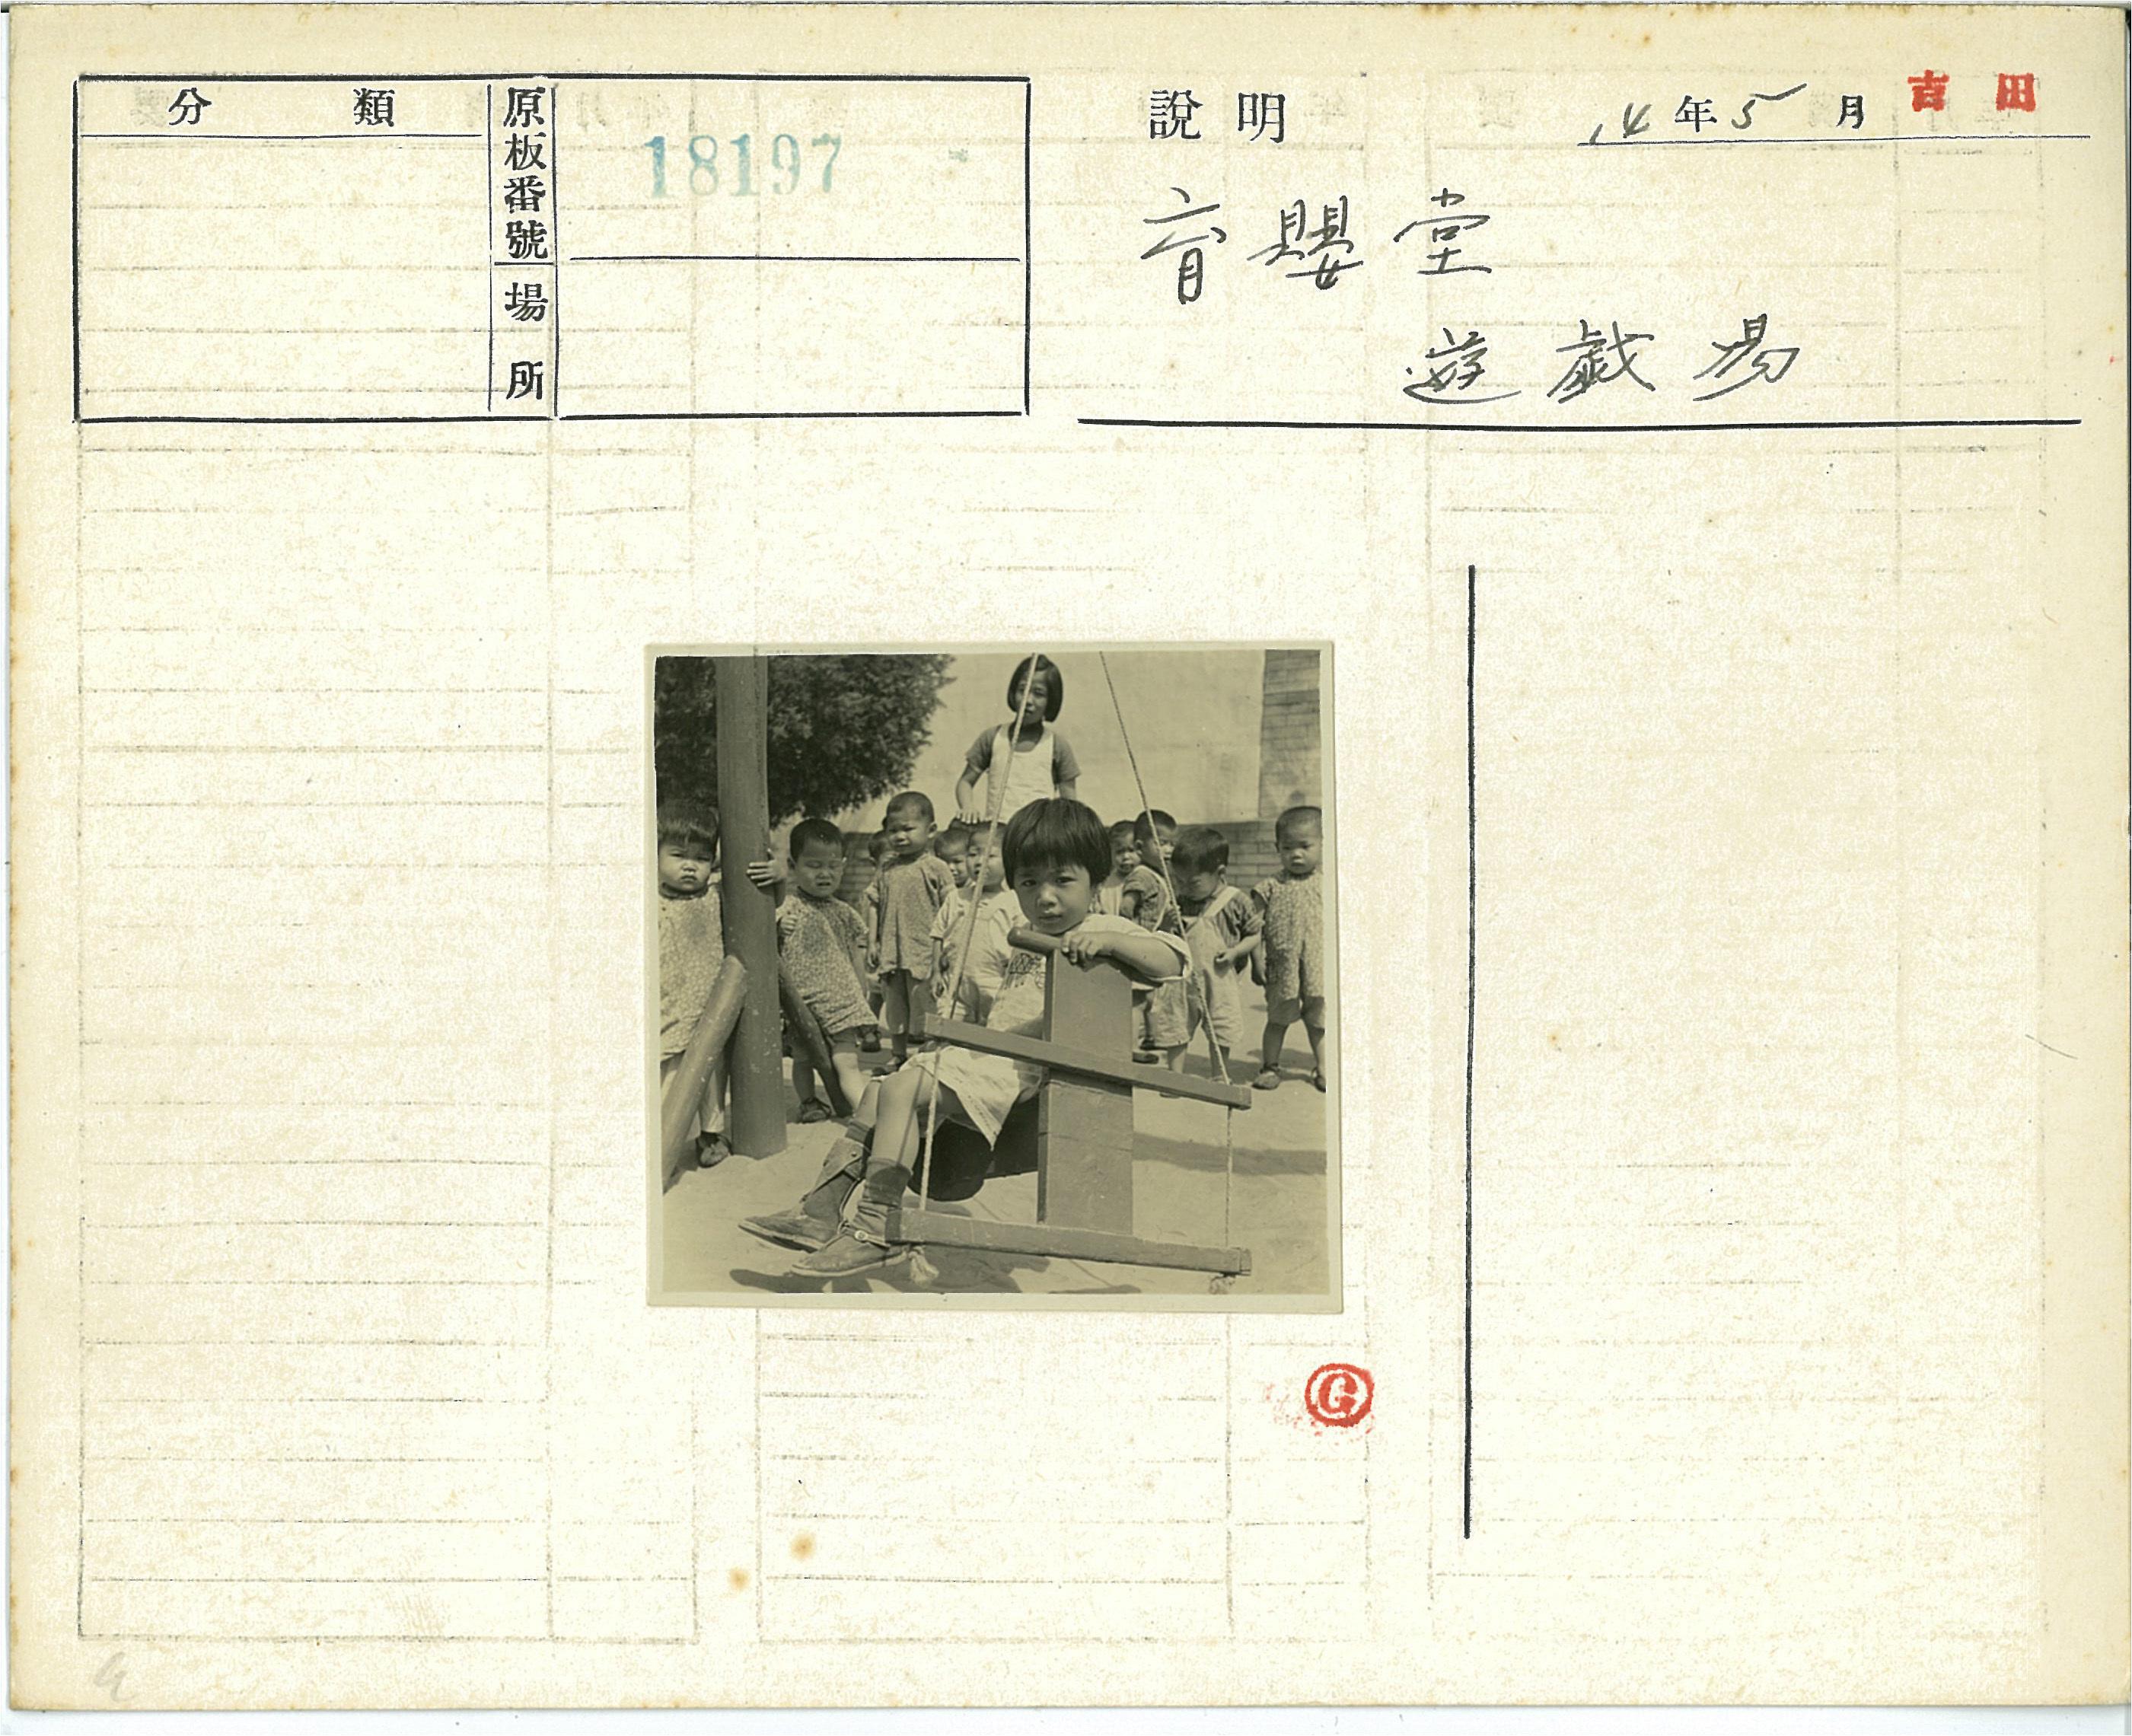 分類
原板番號
18197
場所
説明
14年5月
吉田
育嬰堂
遊戯場
G